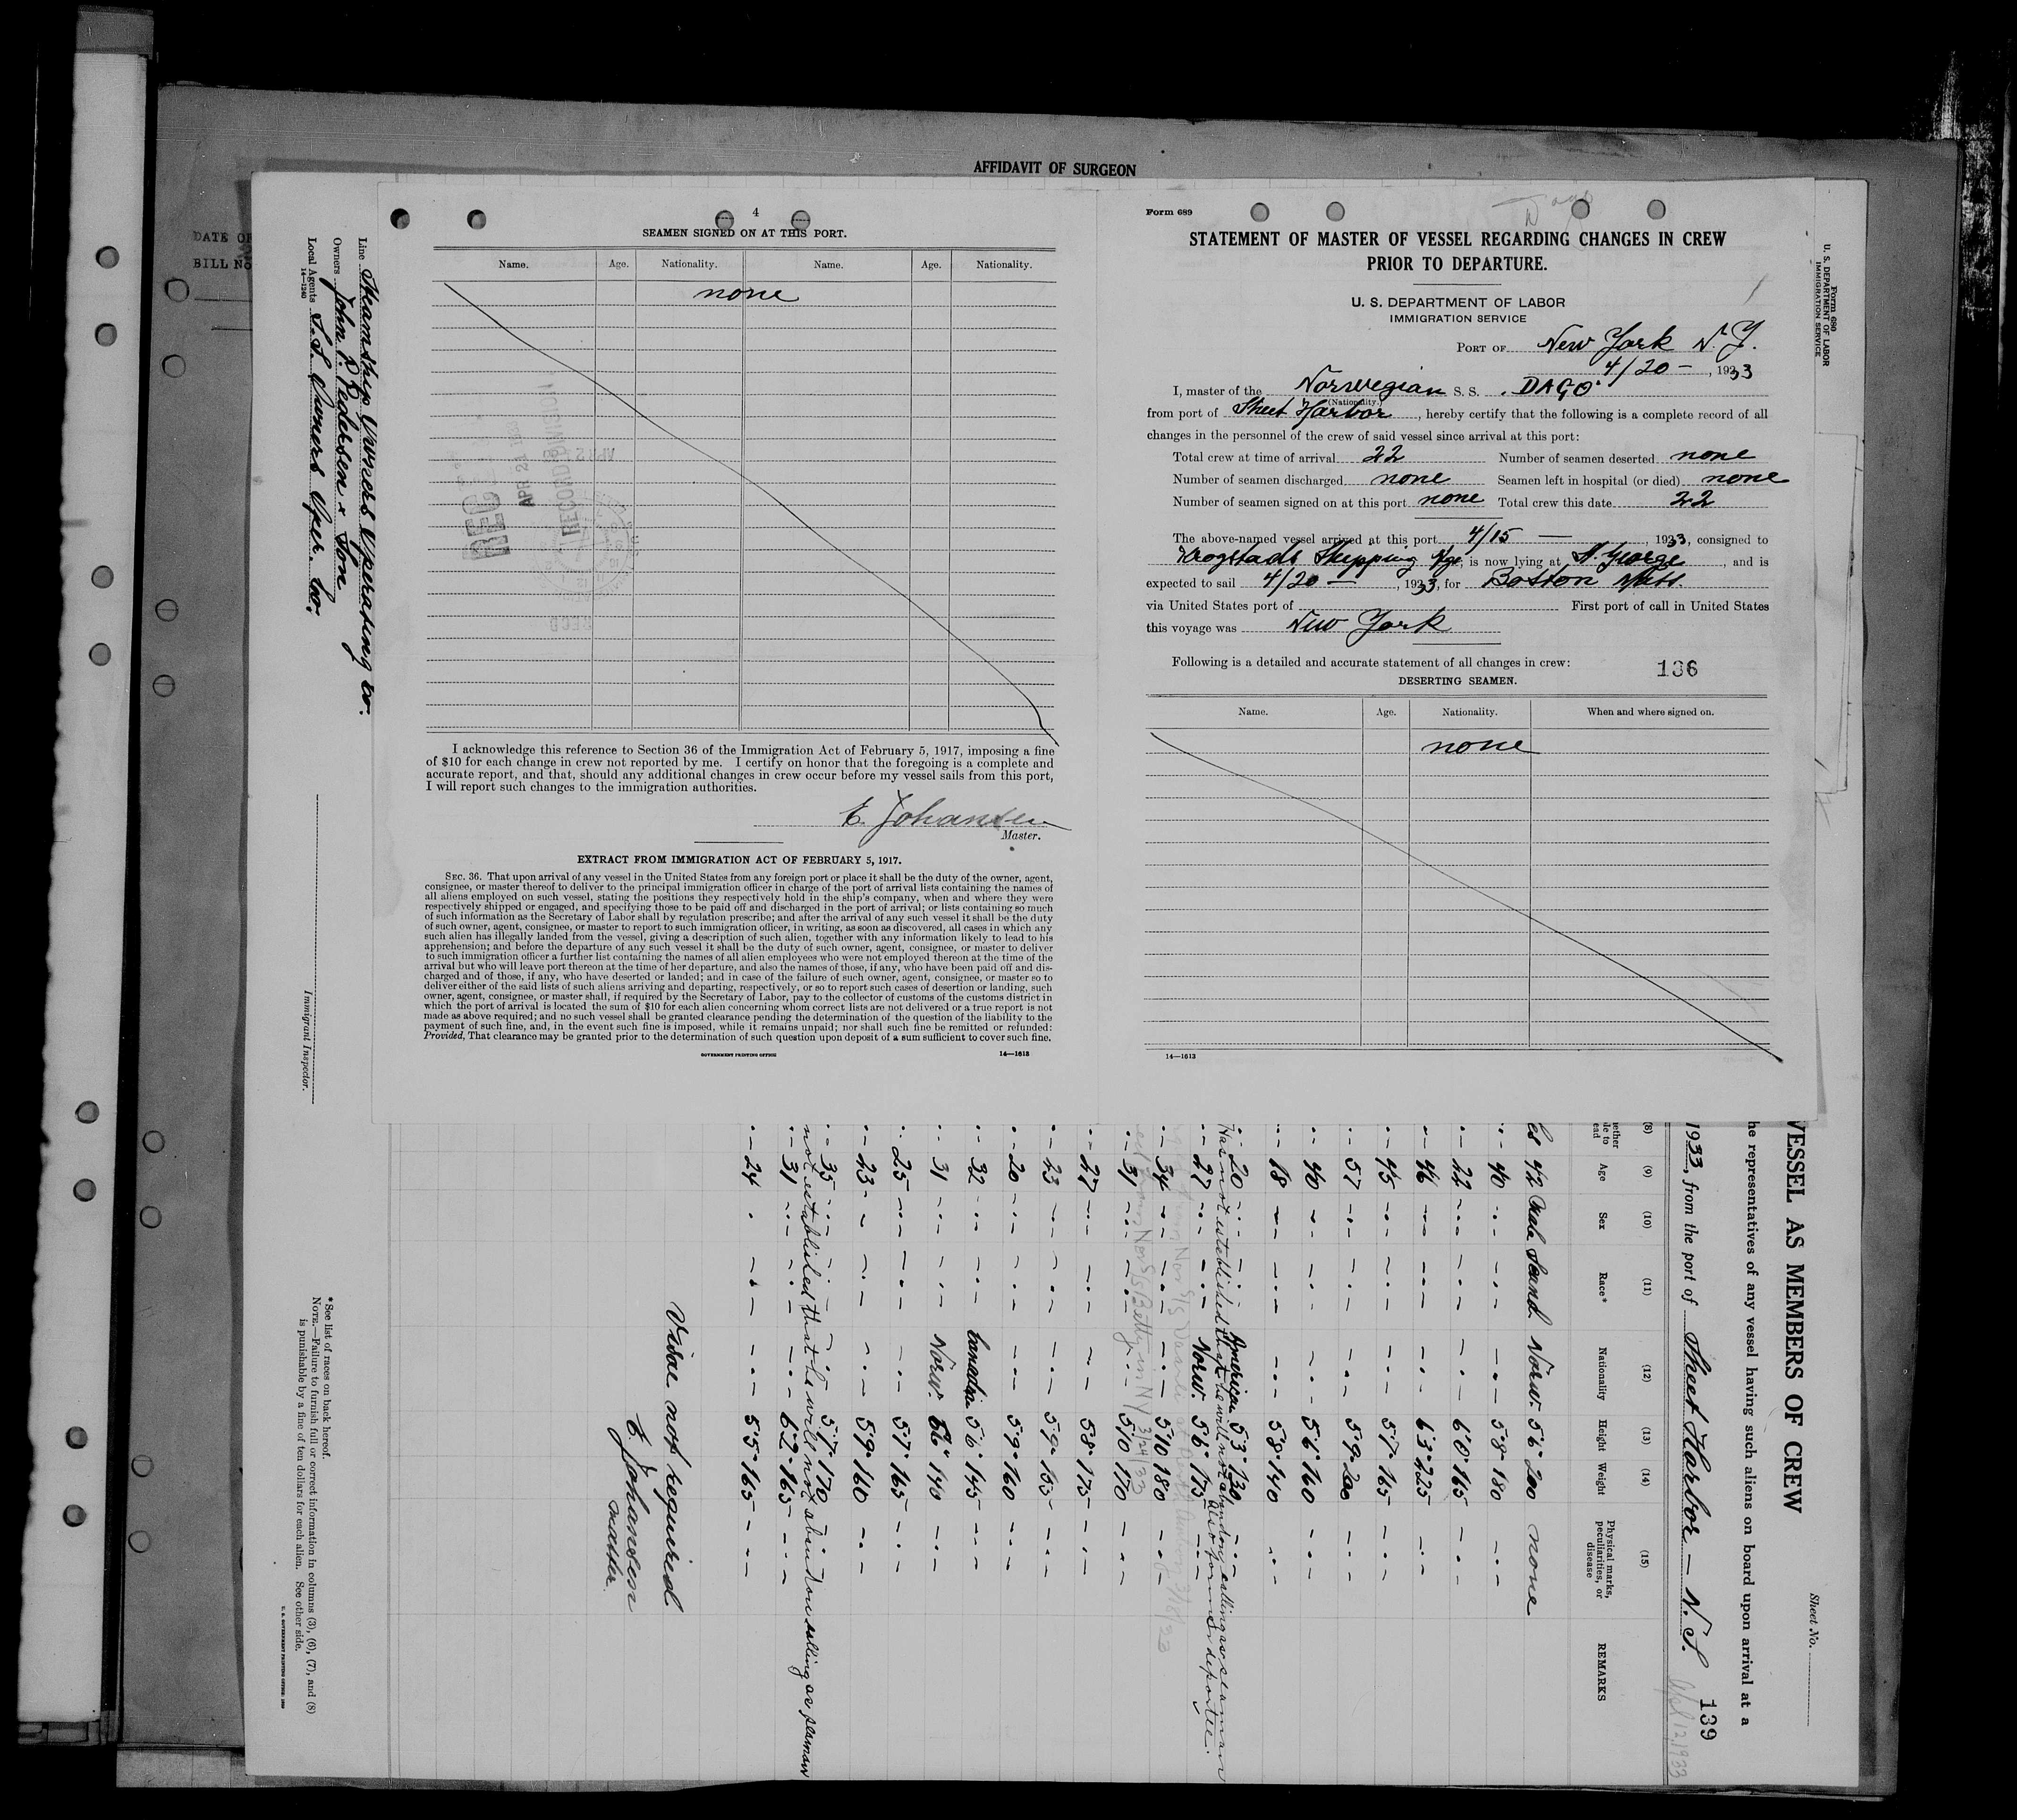 AFFIDAVIT OF SURGEON
DATE OF
BILL No
4
SEAMEN SIGNED ON AT THIS PORT.
Name. Age. Nationality. Name. Age. Nationality.
none
RECORD DIVISION
APR 21 1933
REC'D
I acknowledge this reference to Section 36 of the Immigration Act of February 5, 1917, imposing a fine
of $10 for each change in crew not reported by me. I certify on honor that the foregoing is a complete and
accurate report, and that, should any additional changes in crew occur before my vessel sails from this port,
I will report such changes to the immigration authorities.
E. Johansen
Master.
EXTRACT FROM IMMIGRATION ACT OF FEBRUARY 5, 1917.
SEC. 36. That upon arrival of any vessel in the United States from any foreign port or place it shall be the duty of the owner, agent,
consignee, or master thereof to deliver to the principal immigration officer in charge of the port of arrival lists containing the names of
all aliens employed on such vessel, stating the positions they respectively hold in the ship's company, when and where they were
respectively shipped or engaged, and specifying those to be paid off and discharged in the port of arrival; or lists containing so much
of such information as the Secretary of Labor shall by regulation prescribe; and after the arrival of any such vessel it shall be the duty
of such owner, agent, consignee, or master to report to such immigration officer, in writing, as soon as discovered, all cases in which any
such alien has illegally landed from the vessel, giving a description of such alien, together with any information likely to lead to his
apprehension; and before the departure of any such vessel it shall be the duty of such owner, agent, consignee, or master to deliver
to such immigration officer a further list containing the names of all alien employees who were not employed thereon at the time of the
arrival but who will leave port thereon at the time of her departure, and also the names of those, if any, who have been paid off and dis-
charged and of those, if any, who have deserted or landed; and in case of the failure of such owner, agent, consignee, or master so to
deliver either of the said lists of such aliens arriving and departing, respectively, or so to report such cases of desertion or landing, such
owner, agent, consignee, or master shall, if required by the Secretary of Labor, pay to the collector of customs of the customs district in
which the port of arrival is located the sum of $10 for each alien concerning whom correct lists are not delivered or a true report is not
made as above required; and no such vessel shall be granted clearance pending the determination of the question of the liability to the
payment of such fine, and, in the event such fine is imposed, while it remains unpaid; nor shall such fine be remitted or refunded:
Provided, That clearance may be granted prior to the determination of such question upon deposit of a sum sufficient to cover such fine.
GOVERNMENT PRINTING OFFICE 14—1613
Form 689
STATEMENT OF MASTER OF VESSEL REGARDING CHANGES IN CREW
PRIOR TO DEPARTURE.
U. S. DEPARTMENT OF LABOR
IMMIGRATION SERVICE
PORT OF New York N.Y.
4/20 — , 1933
I, master of the Norwegian S. S. "DAGO"
(Nationality.)
from port of Sheet Harbor, hereby certify that the following is a complete record of all
changes in the personnel of the crew of said vessel since arrival at this port:
Total crew at time of arrival 22 Number of seamen deserted none
Number of seamen discharged none Seamen left in hospital (or died) none
Number of seamen signed on at this port none Total crew this date 22
The above-named vessel arrived at this port 4/15 — , 1933, consigned to
Krogstads Shipping Agc is now lying at St. George, and is
expected to sail 4/20 — , 1933, for Boston Mass.
via United States port of First port of call in United States
this voyage was New York
Following is a detailed and accurate statement of all changes in crew:
136
DESERTING SEAMEN.
Name. Age. Nationality. When and where signed on.
none
14—1613
Form 680
U. S. DEPARTMENT OF LABOR
IMMIGRATION SERVICE
Sheet No.
VESSEL AS MEMBERS OF CREW
he representatives of any vessel having such aliens on board upon arrival at a
139
1933, from the port of Sheet Harbor — N.S.
April 12, 1933
(8) (9) (10) (11) (12) (13) (14) (15)
Age Sex Race* Nationality Height Weight Physical marks, peculiarities, or disease REMARKS
es 42 Male Scand. Norw. 5'6" 200 none
40 5'8" 180
22 6'0" 165
46 6'3" 225
45 5'7" 165
57 5'9" 200
40 5'6" 160
18 5'8" 140
20 American 5'3" 130
Has not established that he will not abandon calling as seaman
27 Norw. 5'6" 175
Also form Sr deportee.
34 5'10" 180
31 5'10" 170
27 5'8" 175
23 5'9" 155
20 5'9" 160
32 Canadian 5'6" 145
31 Norw 5'6" 140
25 5'7" 165
23 5'9" 160
35 5'7" 170
not established that he will not abandon calling as seaman
31 6'2" 165
24 5'5" 165
Visae not required
E. Johansen
master.
Line Steamship Owners Operating Co.
Owners John P. Pedersen & Son
Local Agents S.S. Owners Oper. Co.
14—1240
Immigrant Inspector.
*See list of races on back hereof.
NOTE.—Failure to furnish full or correct information in columns (3), (6), (7), and (8)
is punishable by a fine of ten dollars for each alien. See other side.
U. S. GOVERNMENT PRINTING OFFICE